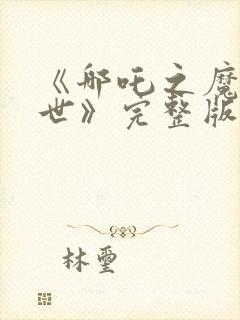 《哪吒之魔
世》完整版
林玺